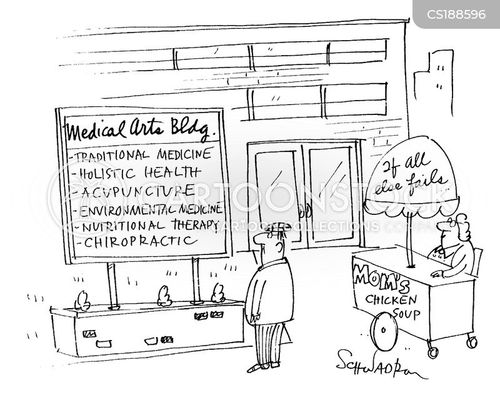 CS188596
Medical Arts Bldg.
- TRADITIONAL MEDICINE
- HOLISTIC HEALTH
- ACUPUNCTURE
- ENVIRONMENTAL MEDICINE
- NUTRITIONAL THERAPY
- CHIROPRACTIC
If all
else fails
MOM'S
CHICKEN
SOUP
SCHWADRON